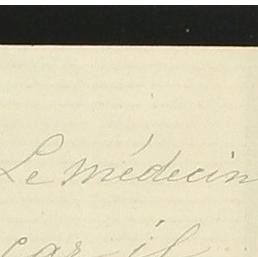 Le médecin
car il